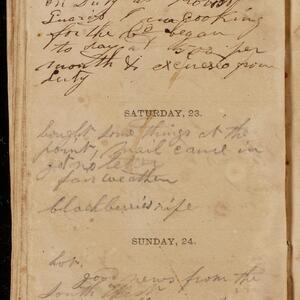 on duty as Provost
Guard I am cooking
for the Co began
to day at per
month & excused from
duty
SATURDAY, 23.
bought some things at the
point, mail came in
got no letter
fair weather
blackberries ripe
SUNDAY, 24.
hot.
good news from the
south